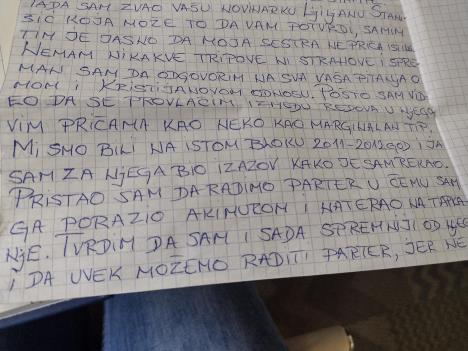 TADA SAM ZVAO VAŠU NOVINARKU LJILJANU STAN-
ŠIĆ KOJA MOŽE TO DA VAM POTVRDI, SAMIM
TIM JE JASNO DA MOJA SESTRA NEPRIČA ISTINU
NEMAM NIKAKVE TRIPOVE NI STRAHOVE I SPRE-
MAN SAM DA ODGOVORIM NA SVA VAŠA PITANJA O
MOM I KRISTIJANOVOM ODNOSU. POŠTO SAM VID-
EO DA SE PROVLAČIM, IZMEĐU REDOVA U NJEGO
VIM PRIČAMA KAO NEKO KAO MARGINALAN TIP.
MI SMO BILI NA ISTOM BLOKU 2011-2012GOD I JA
SAM ZA NJEGA BIO IZAZOV KAKO JE SAM REKAO.
PRISTAO SAM DA RADIMO PARTER U ČEMU SAM
GA PORAZIO AKIMUROM I NATERAO NA TAPKA-
NJE. TVRDIM DA SAM I SADA SPREMNIJI OD NJEGA
I DA UVEK MOŽEMO RADITI PARTER, JER NE